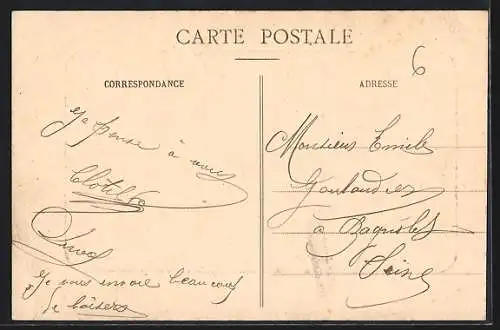 CARTE POSTALE
6
CORRESPONDANCE
ADRESSE
pense à vous
Clotilde
Je vous envoie beaucoup
de baisers
Monsieur Emile
à Bagnolet
Seine